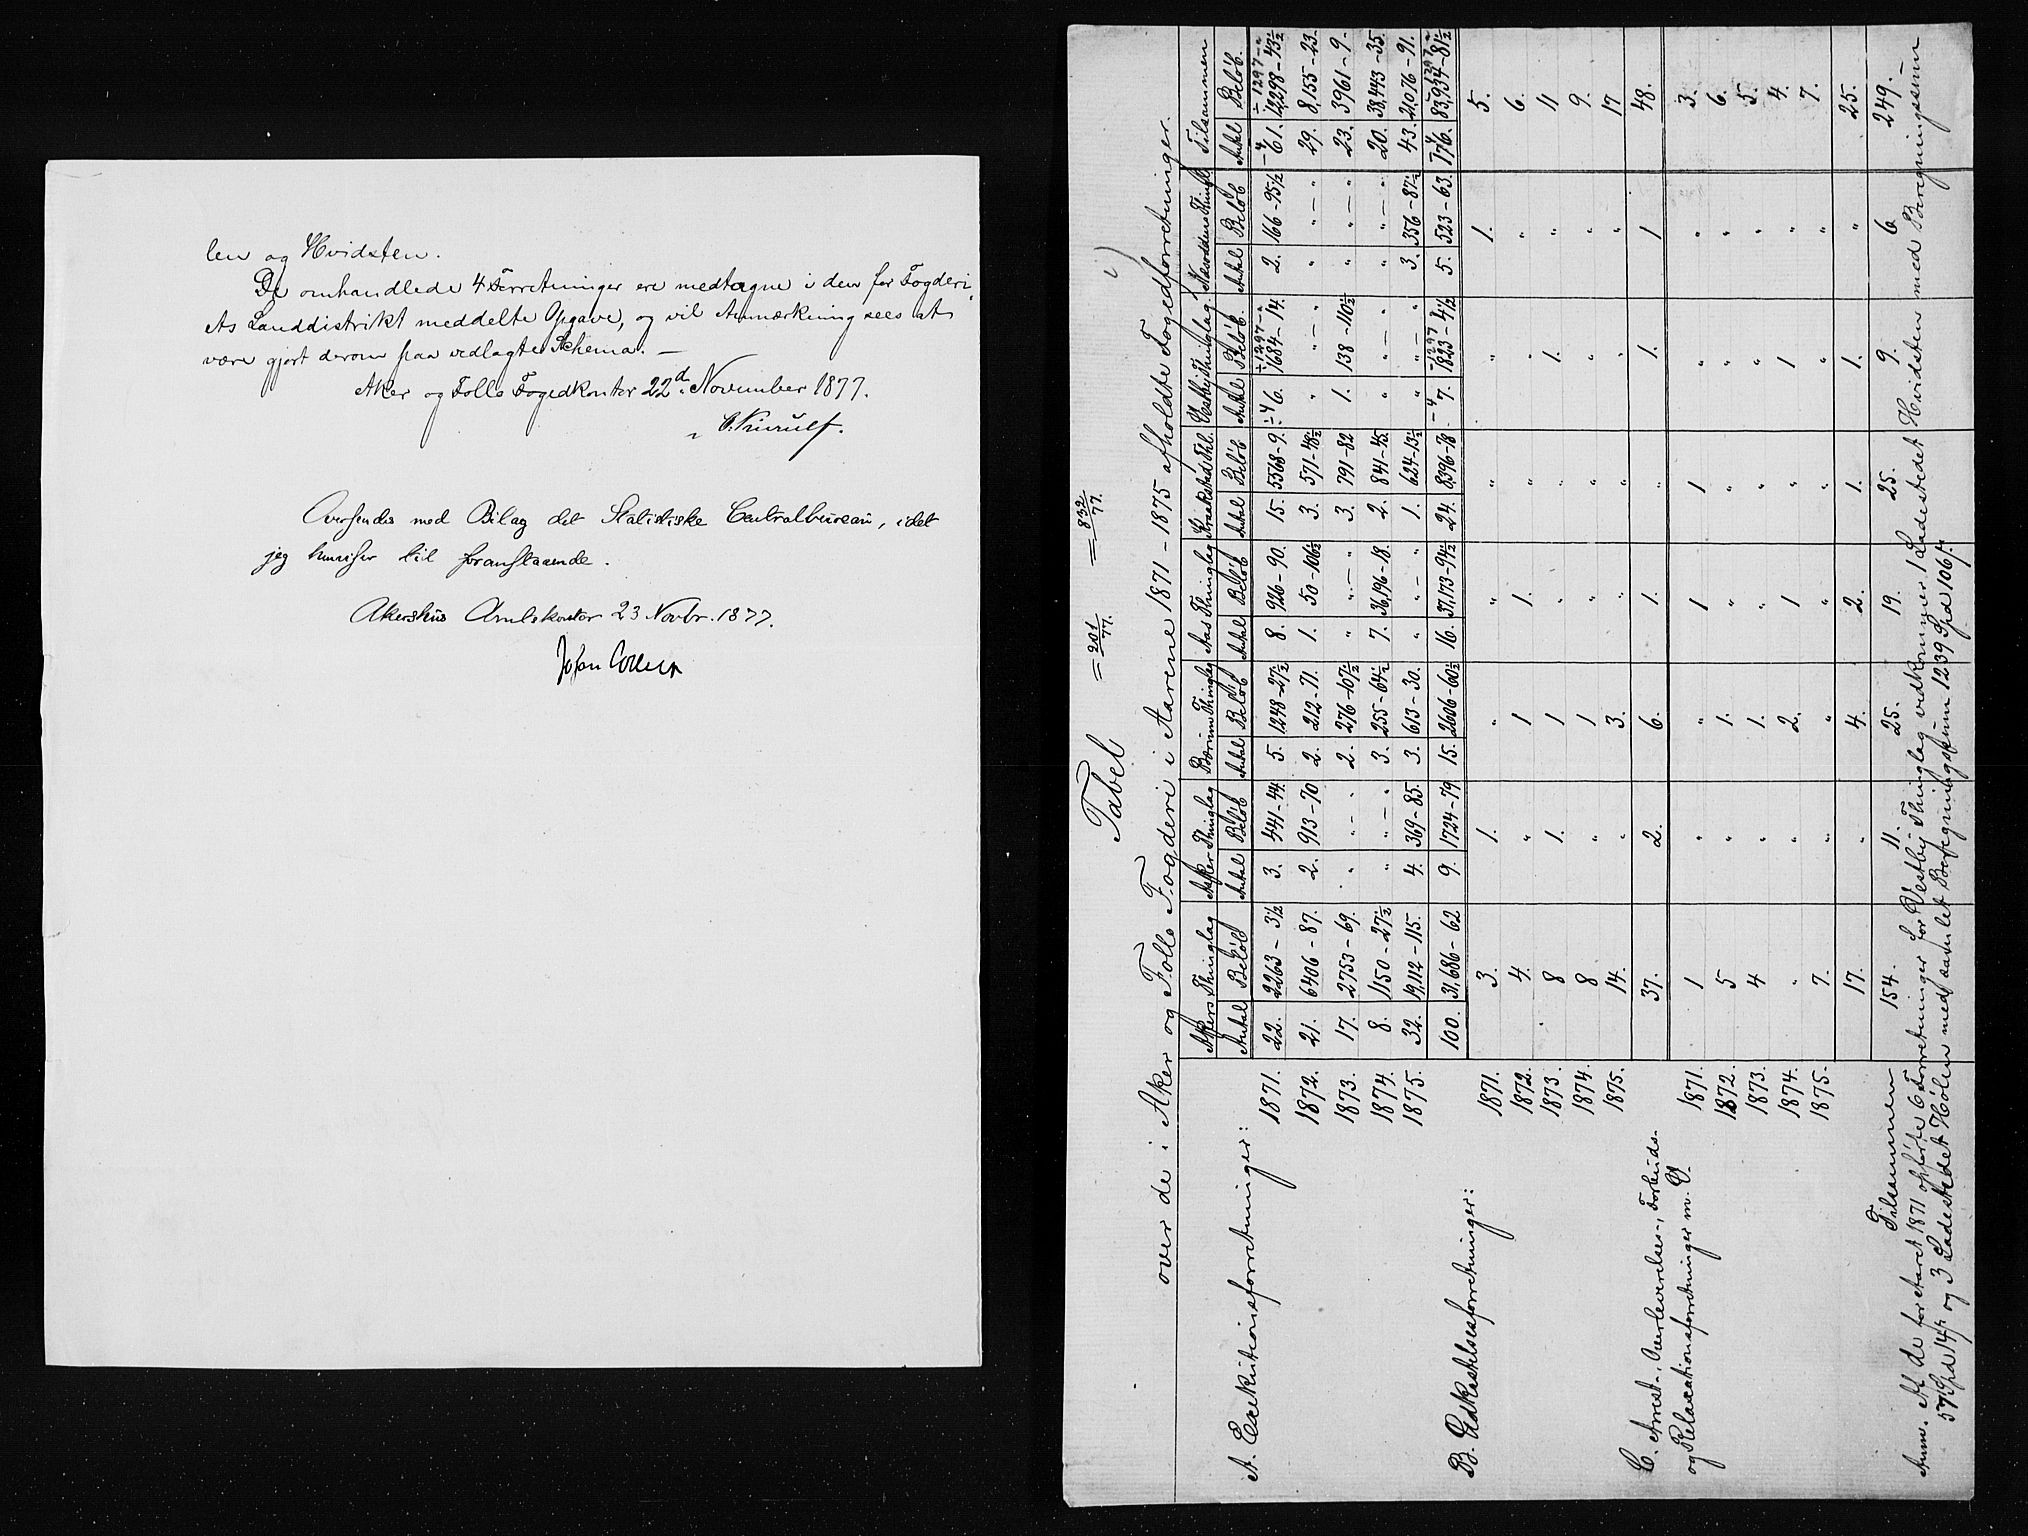 len og Hvidsten.
De omhandlede 4 Forretninger ere medtagne i den for Fogderi-
ets Landdistrikt meddelte Opgave, og vil Anmærkning sees at
være gjort derom paa vedlagte Schema. —
Aker og Follo Fogedkontor 22d November 1877.
Oversendes med Bilag det Statistiske Centralbureau, idet
jeg henviser til foranstaaende.
Akershus Amtskontor 23 Novbr. 1877.
Johan Collett
= 201/77. = 832/77.
Tabel
over de i Aker og Follo Fogderi i Aarene 1871 - 1875 afholdte Fogedforretninger.
Akers Thinglag Asker Thinglag Bærum Thinglag Aas Thinglag Kraakstad Thl. Vestby Thinglag Næsoddens Thingl. Tilsammen
Antal Beløb Antal Beløb Antal Beløb Antal Beløb Antal Beløb Antal Beløb Antal Beløb Antal Beløb.
÷ 4 ÷ 1297 - " - 4 ÷ 1297 - "
A. Exekutionsforretninger: 1871. 22. 2263 - 3½ 3. 441 - 44. 5. 1248 - 27½ 8. 926 - 90. 15. 5568 - 9. 6. 1684 - 14. 2. 166 - 95½ 61. 12,298 - 43½
1872. 21. 6406 - 87. 2. 913 - 70 2. 212 - 71. 1. 50 - 106½ 3. 571 - 48½ " " - " " " - " 29. 8,155 - 23.
1873. 17. 2753 - 69. " " - " 2. 276 - 107½ " " - " 3. 791 - 82 1. 138 - 110½ " " - " 23. 3961 - 9.
1874. 8. 1150 - 27½ " " - " 3. 255 - 64½ 7. 36,196 - 18. 2. 841 - 45. " " - " " " - " 20. 38,443 - 35.
1875. 32. 19,112 - 115. 4. 369 - 85. 3. 613 - 30. " " - " 1. 624 - 13½ " " - " 3. 356 - 87½ 43. 21,076 - 91.
100. 31,686 - 62 9. 1724 - 79 15. 2606 - 60½ 16. 37,173 - 94½ 24. 8,396 - 78 7. 1823 - 4½ 5. 523 - 63. 176. 83,934 - 81½
B. Udkastelsesforretninger: 1871. 3. 1. " " " " 1. 5.
1872. 4. " 1 1. " " " 6.
1873. 8 1. 1 " " 1. " 11
1874 8 " 1 " " " " 9.
1875. 14. " 3. " " " " 17
37. 2. 6. 1. " 1. 1 48.
C. Arrest-, Overleverelses-, Forbuds-
og Relaxationsforretninger m. V.
1871. 1 " " 1 1 " " 3.
1872. 5 " 1. " " " " 6.
1873. 4 " 1. " " " " 5.
1874. " " 2. 1 " 1 " 4.
1875. 7. " " " " " " 7.
17. " 4. 2. 1. 1. " 25.
Tilsammen 154. 11. 25. 19. 25. 9. 6. 249.
Anm. Af de for Aaret 1871 opførte 6 Forretninger for Vestby Thinglag vedkommer 1 Ladestedet Hvidsten med Beregningssum
57 Spd 14 ß og 3 Ladestedet Hölen med samlet Beregningssum 1239 Spd 106 ß.